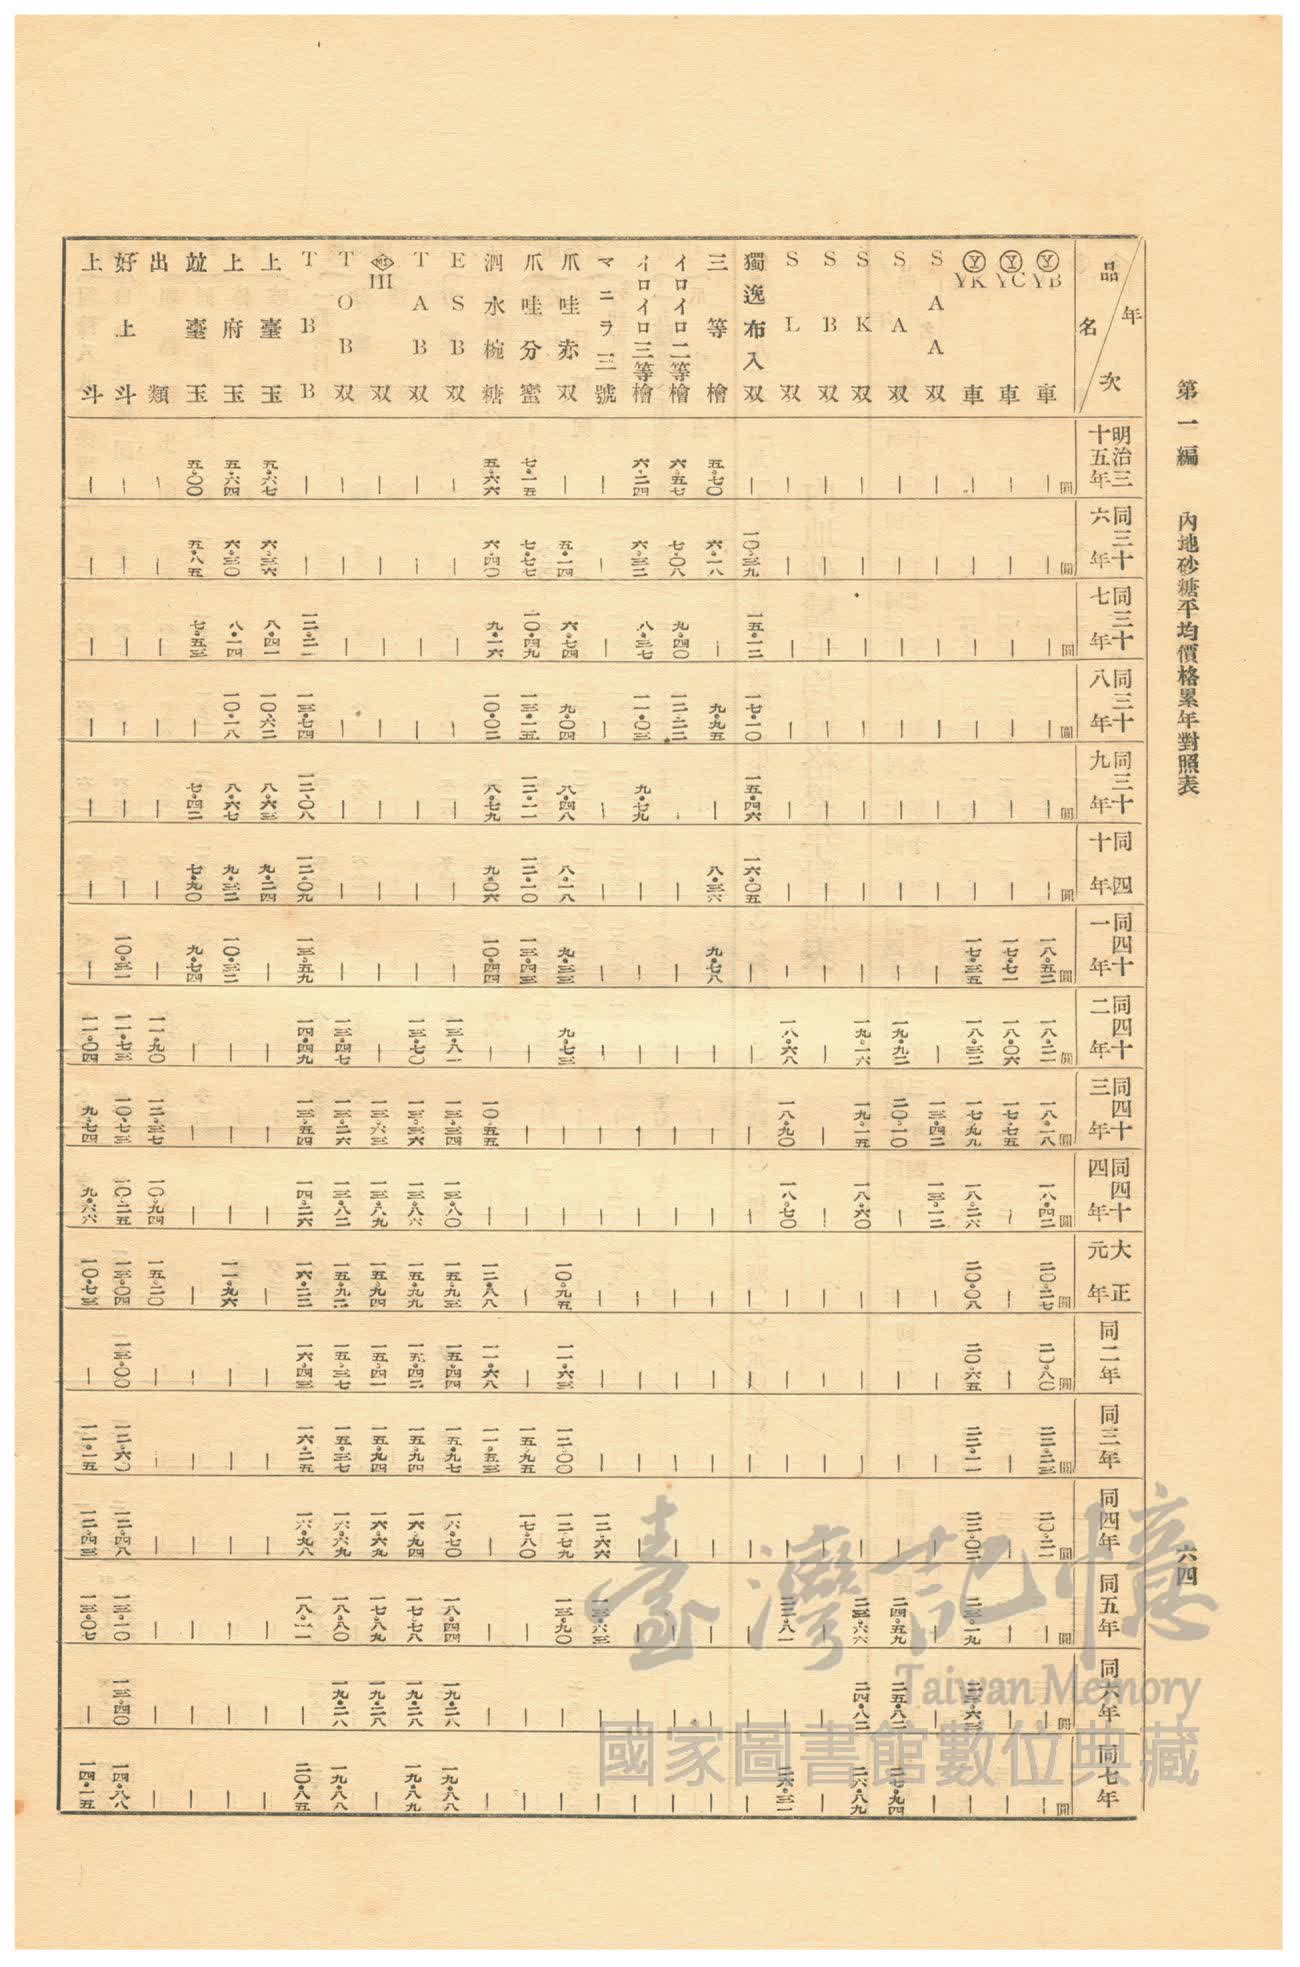 第一編 內地砂糖平均價格累年對照表 六四
年次 品名 明治三十五年 同三十六年 同三十七年 同三十八年 同三十九年 同四十年 同四十一年 同四十二年 同四十三年 同四十四年 大正元年 同二年 同三年 同四年 同五年 同六年 同七年
Ⓨ YB 車 | | | | | | 一八・五二 一八・二一 一八・一八 一八・四二 二〇・二七 二〇・八〇 二二・二三 二〇・二一 | | |
圓 圓 圓 圓 圓 圓 圓 圓 圓 圓 圓 圓 圓 圓 圓 圓 圓
Ⓨ YC 車 | | | | | | 一七・七一 一八・〇六 一七・七五 | | | | | | | |
Ⓨ YK 車 | | | | | | 一七・三五 一八・三二 一七・九九 一八・二六 二〇・〇八 二〇・六五 二二・一一 二二・〇二 二三・一九 二三・六三 |
SAA双 | | | | | | | | 一三・四二 一三・一二 | | | | | | |
SA双 | | | | | | | 一九・九二 二〇・一〇 | | | | | 二四・五九 二五・八二 二七・九四
SK双 | | | | | | | 一九・一六 一九・一五 一八・六〇 | | | | 二三・六六 二四・八二 二六・八九
SB双 | | | | | | | | | | | | | | | | |
SL双 | | | | | | | 一八・六八 一八・九〇 一八・七〇 | | | | 二二・八一 | 二六・三一
獨逸布入双 | 一〇・三九 一五・一二 一七・一〇 一五・四六 一六・〇五 | | | | | | | | | | |
三等檜 五・七〇 六・一八 | 九・九五 | 八・三六 九・七八 | | | | | | | | | |
イロイロ二等檜 六・五七 七・〇八 九・四〇 一二・二二 | | | | | | | | | | | | |
イロイロ三等檜 六・二四 六・三二 八・三七 一一・〇三 九・七九 | | | | | | | | | | | |
マニラ三號 | | | | | | | | | | | | | 一二・六六 一三・六三 | |
爪哇赤双 | 五・一四 六・七四 九・〇四 八・四八 八・一八 九・三三 九・七三 | | 一〇・九五 一一・六三 一二・〇〇 一二・七九 一三・九〇 | |
爪哇分蜜 七・一五 七・七七 一〇・四九 一三・一五 一二・一一 一二・一〇 一三・四三 | | | | | 一五・九五 一七・八〇 | | |
泗水椀糖 五・六六 六・四〇 九・一六 一〇・〇二 八・七九 九・〇六 一〇・四四 | 一〇・五五 | 一二・八八 一一・六八 一一・五三 | | | |
ESB双 | | | | | | | 一三・八一 一三・三四 一三・八〇 一五・九三 一五・四四 一五・九七 一六・七〇 一八・四四 一九・二八 一九・八八
TAB双 | | | | | | | 一三・七〇 一三・三六 一三・八六 一五・九九 一五・四二 一五・九四 一六・九四 一七・七八 一九・二八 一九・八九
III 双 | | | | | | | | 一三・六三 一三・八九 一五・九四 一五・四一 一五・九四 一六・六九 一七・八九 一九・二八 |
TOB双 | | | | | | | 一三・四七 一三・二六 一三・八二 一五・九二 一五・三七 一五・三七 一六・六九 一八・八〇 一九・二八 一九・八八
TBB | | 一二・二一 一三・七四 一二・〇八 一二・〇九 一三・五九 一四・四九 一三・五四 一四・二六 一六・二二 一六・四三 一六・二五 一六・九八 一八・一一 | 二〇・八五
上臺玉 五・六七 六・三六 八・四一 一〇・六二 八・六三 九・二四 | | | | | | | | | | |
上府玉 五・六四 六・三〇 八・一四 一〇・一八 八・六七 九・三二 一〇・三二 | | | 一一・九六 | | | | | |
竝臺玉 五・〇〇 五・八五 七・五三 | 七・四二 七・九〇 九・七四 | | | | | | | | | |
出類 | | | | | | | 一一・九〇 一二・三七 一〇・九四 一五・二〇 | | | | | |
好上斗 | | | | | | 一〇・三一 一一・七三 一〇・七三 一〇・二五 一三・〇四 一三・〇〇 一二・六〇 一二・四八 一三・一〇 一三・四〇 一四・八八
上斗 | | | | | | | 一一・〇四 九・七四 九・六六 一〇・七三 | 一一・一五 一二・四三 一三・〇七 | 一四・一五
臺灣記憶
Taiwan Memory
國家圖書館數位典藏